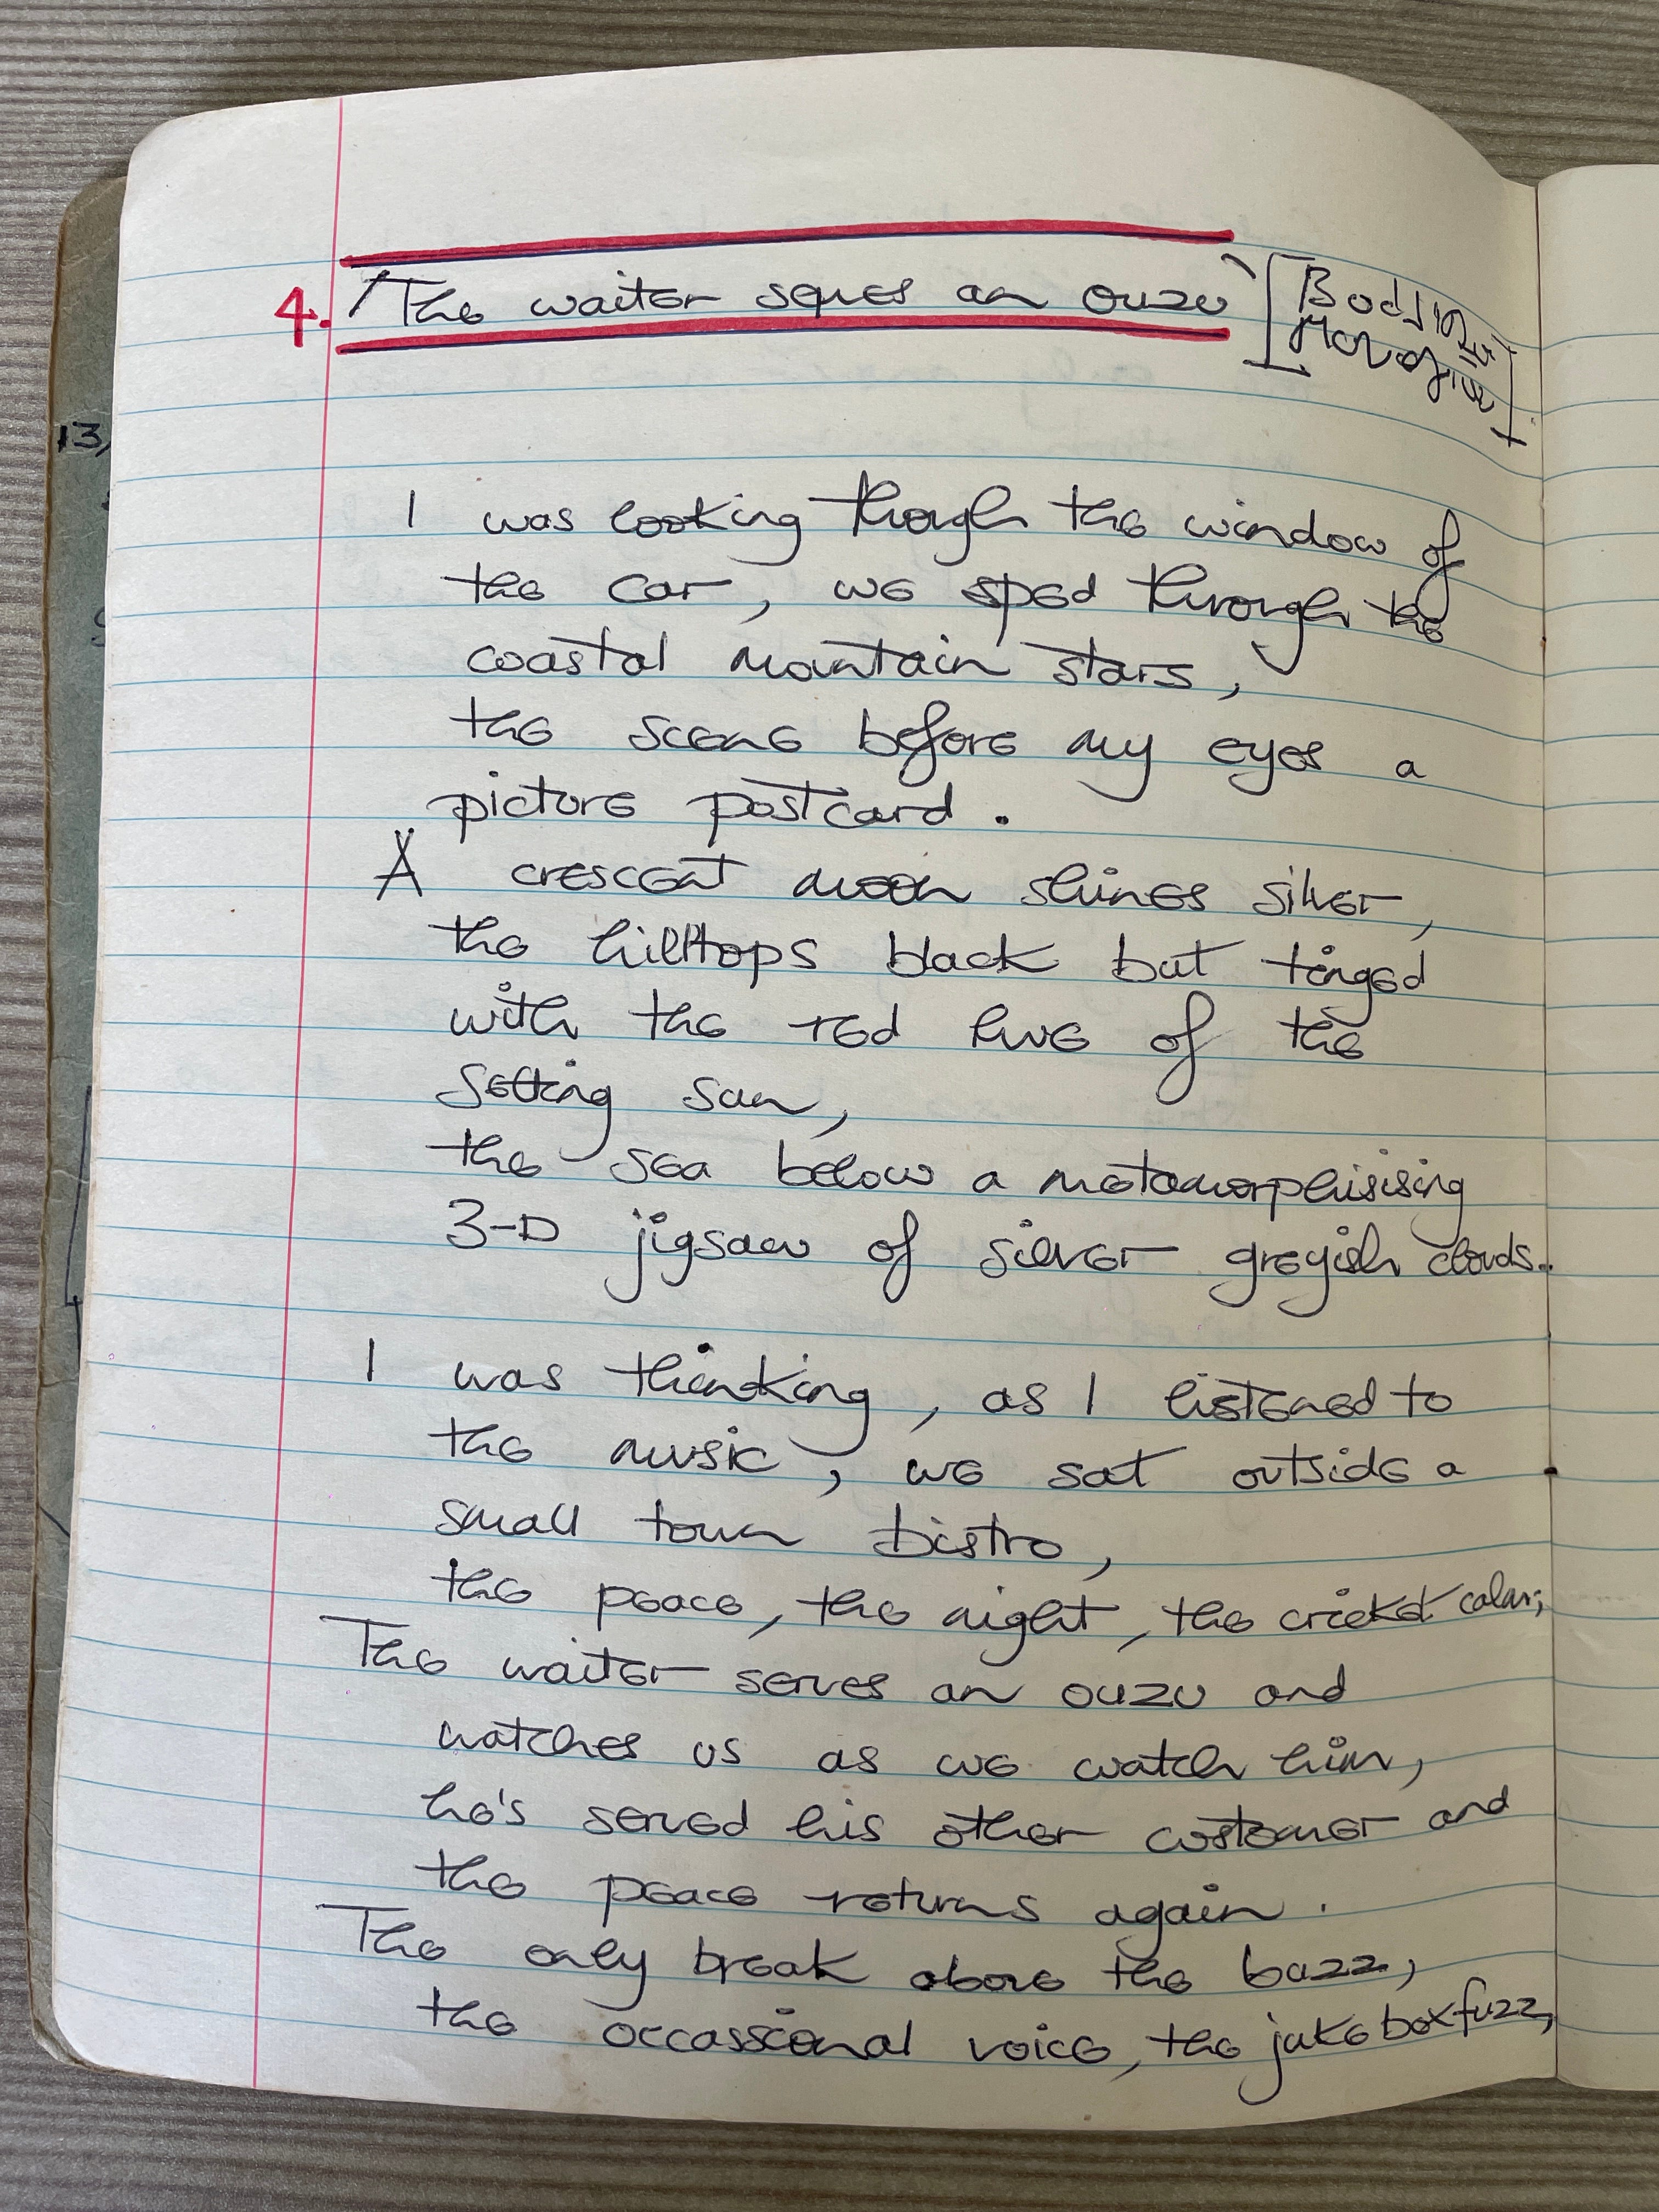 4. 'The waiter serves an ouzo'
I was looking though the window of
the car, we sped through the
coastal mountain stars,
the scene before my eyes a
picture postcard.
A crescent moon shines silver,
the hilltops black but tinged
with the red hue of the
setting sun,
the sea below a metamorphisising
3-D jigsaw of silver greyish clouds..
I was thinking, as I listened to
the music, we sat outside a
small town bistro,
the peace, the night, the cricket calm;
The waiter serves an ouzo and
watches us as we watch him,
he's served his other customer and
the peace returns again.
The only break above the buzz,
the occassional voice, the juke box fuzz,
13,